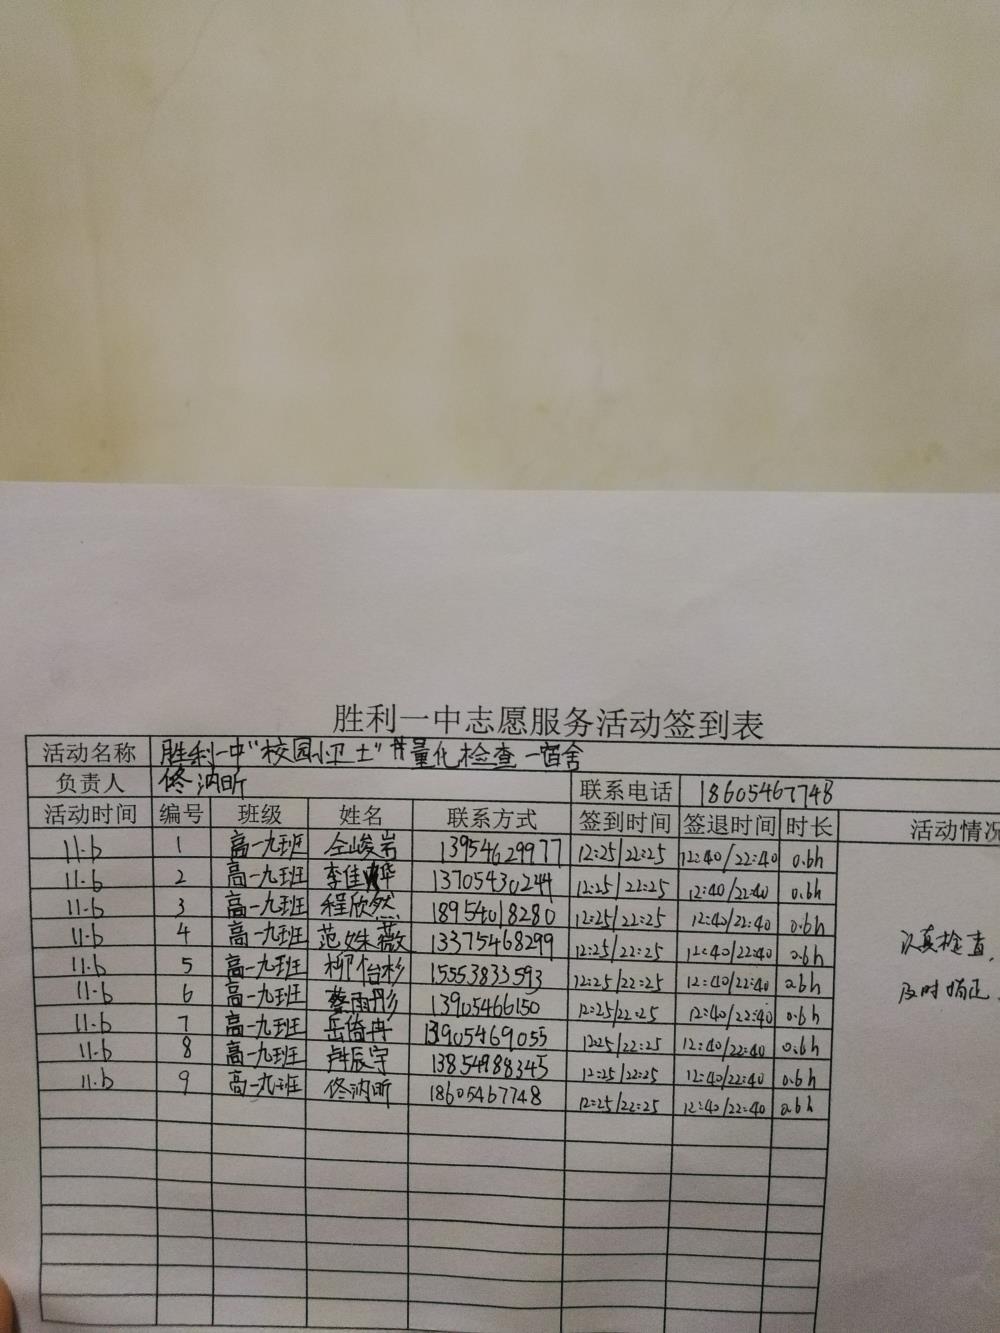 胜利一中志愿服务活动签到表
活动名称 胜利一中“校园小卫士” 量化检查-宿舍
负责人 佟汭昕 联系电话 18605467748
活动时间 编号 班级 姓名 联系方式 签到时间 签退时间 时长 活动情况
11.6 1 高一九班 仝峻岩 13954629977 12:25/22:25 12:40/22:40 0.6h
11.6 2 高一九班 李佳烨 13705430244 12:25/22:25 12:40/22:40 0.6h
11.6 3 高一九班 程欣然 18954018280 12:25/22:25 12:40/22:40 0.6h
11.6 4 高一九班 范姝薇 13375468299 12:25/22:25 12:40/22:40 0.6h 认真检查,
11.6 5 高一九班 柳 杉 15553833593 12:25/22:25 12:40/22:40 0.6h
11.6 6 高一九班 蔡雨彤 13905466150 12:25/22:25 12:40/22:40 0.6h 及时
11.6 7 高一九班 岳倚冉 13905469055 12:25/22:25 12:40/22:40 0.6h
11.6 8 高一九班 卢辰宇 13854988345 12:25/22:25 12:40/22:40 0.6h
11.6 9 高一九班 佟汭昕 18605467748 12:25/22:25 12:40/22:40 0.6h